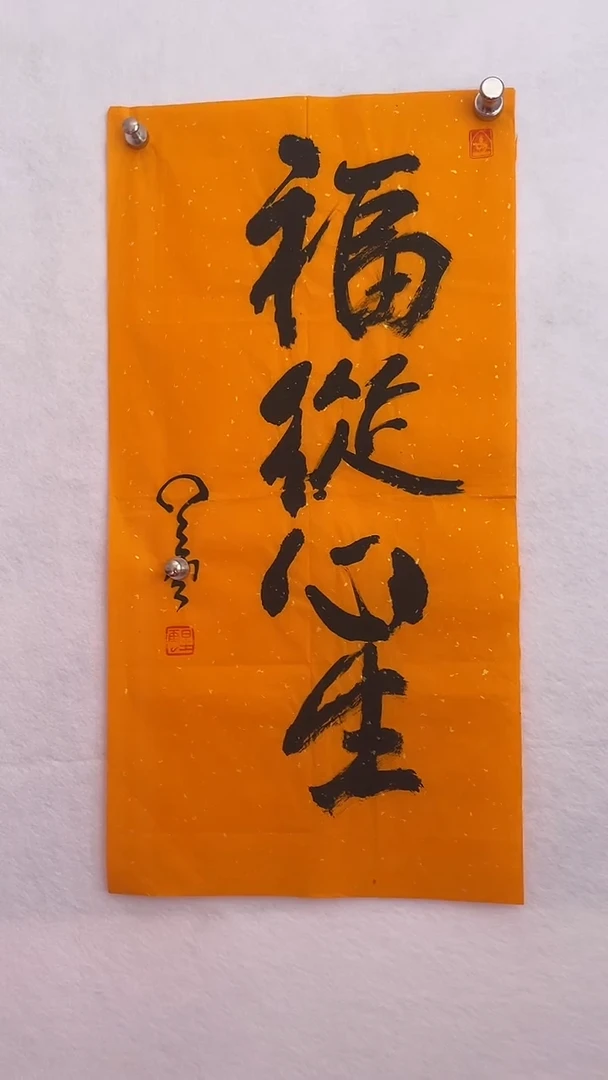 福從心生